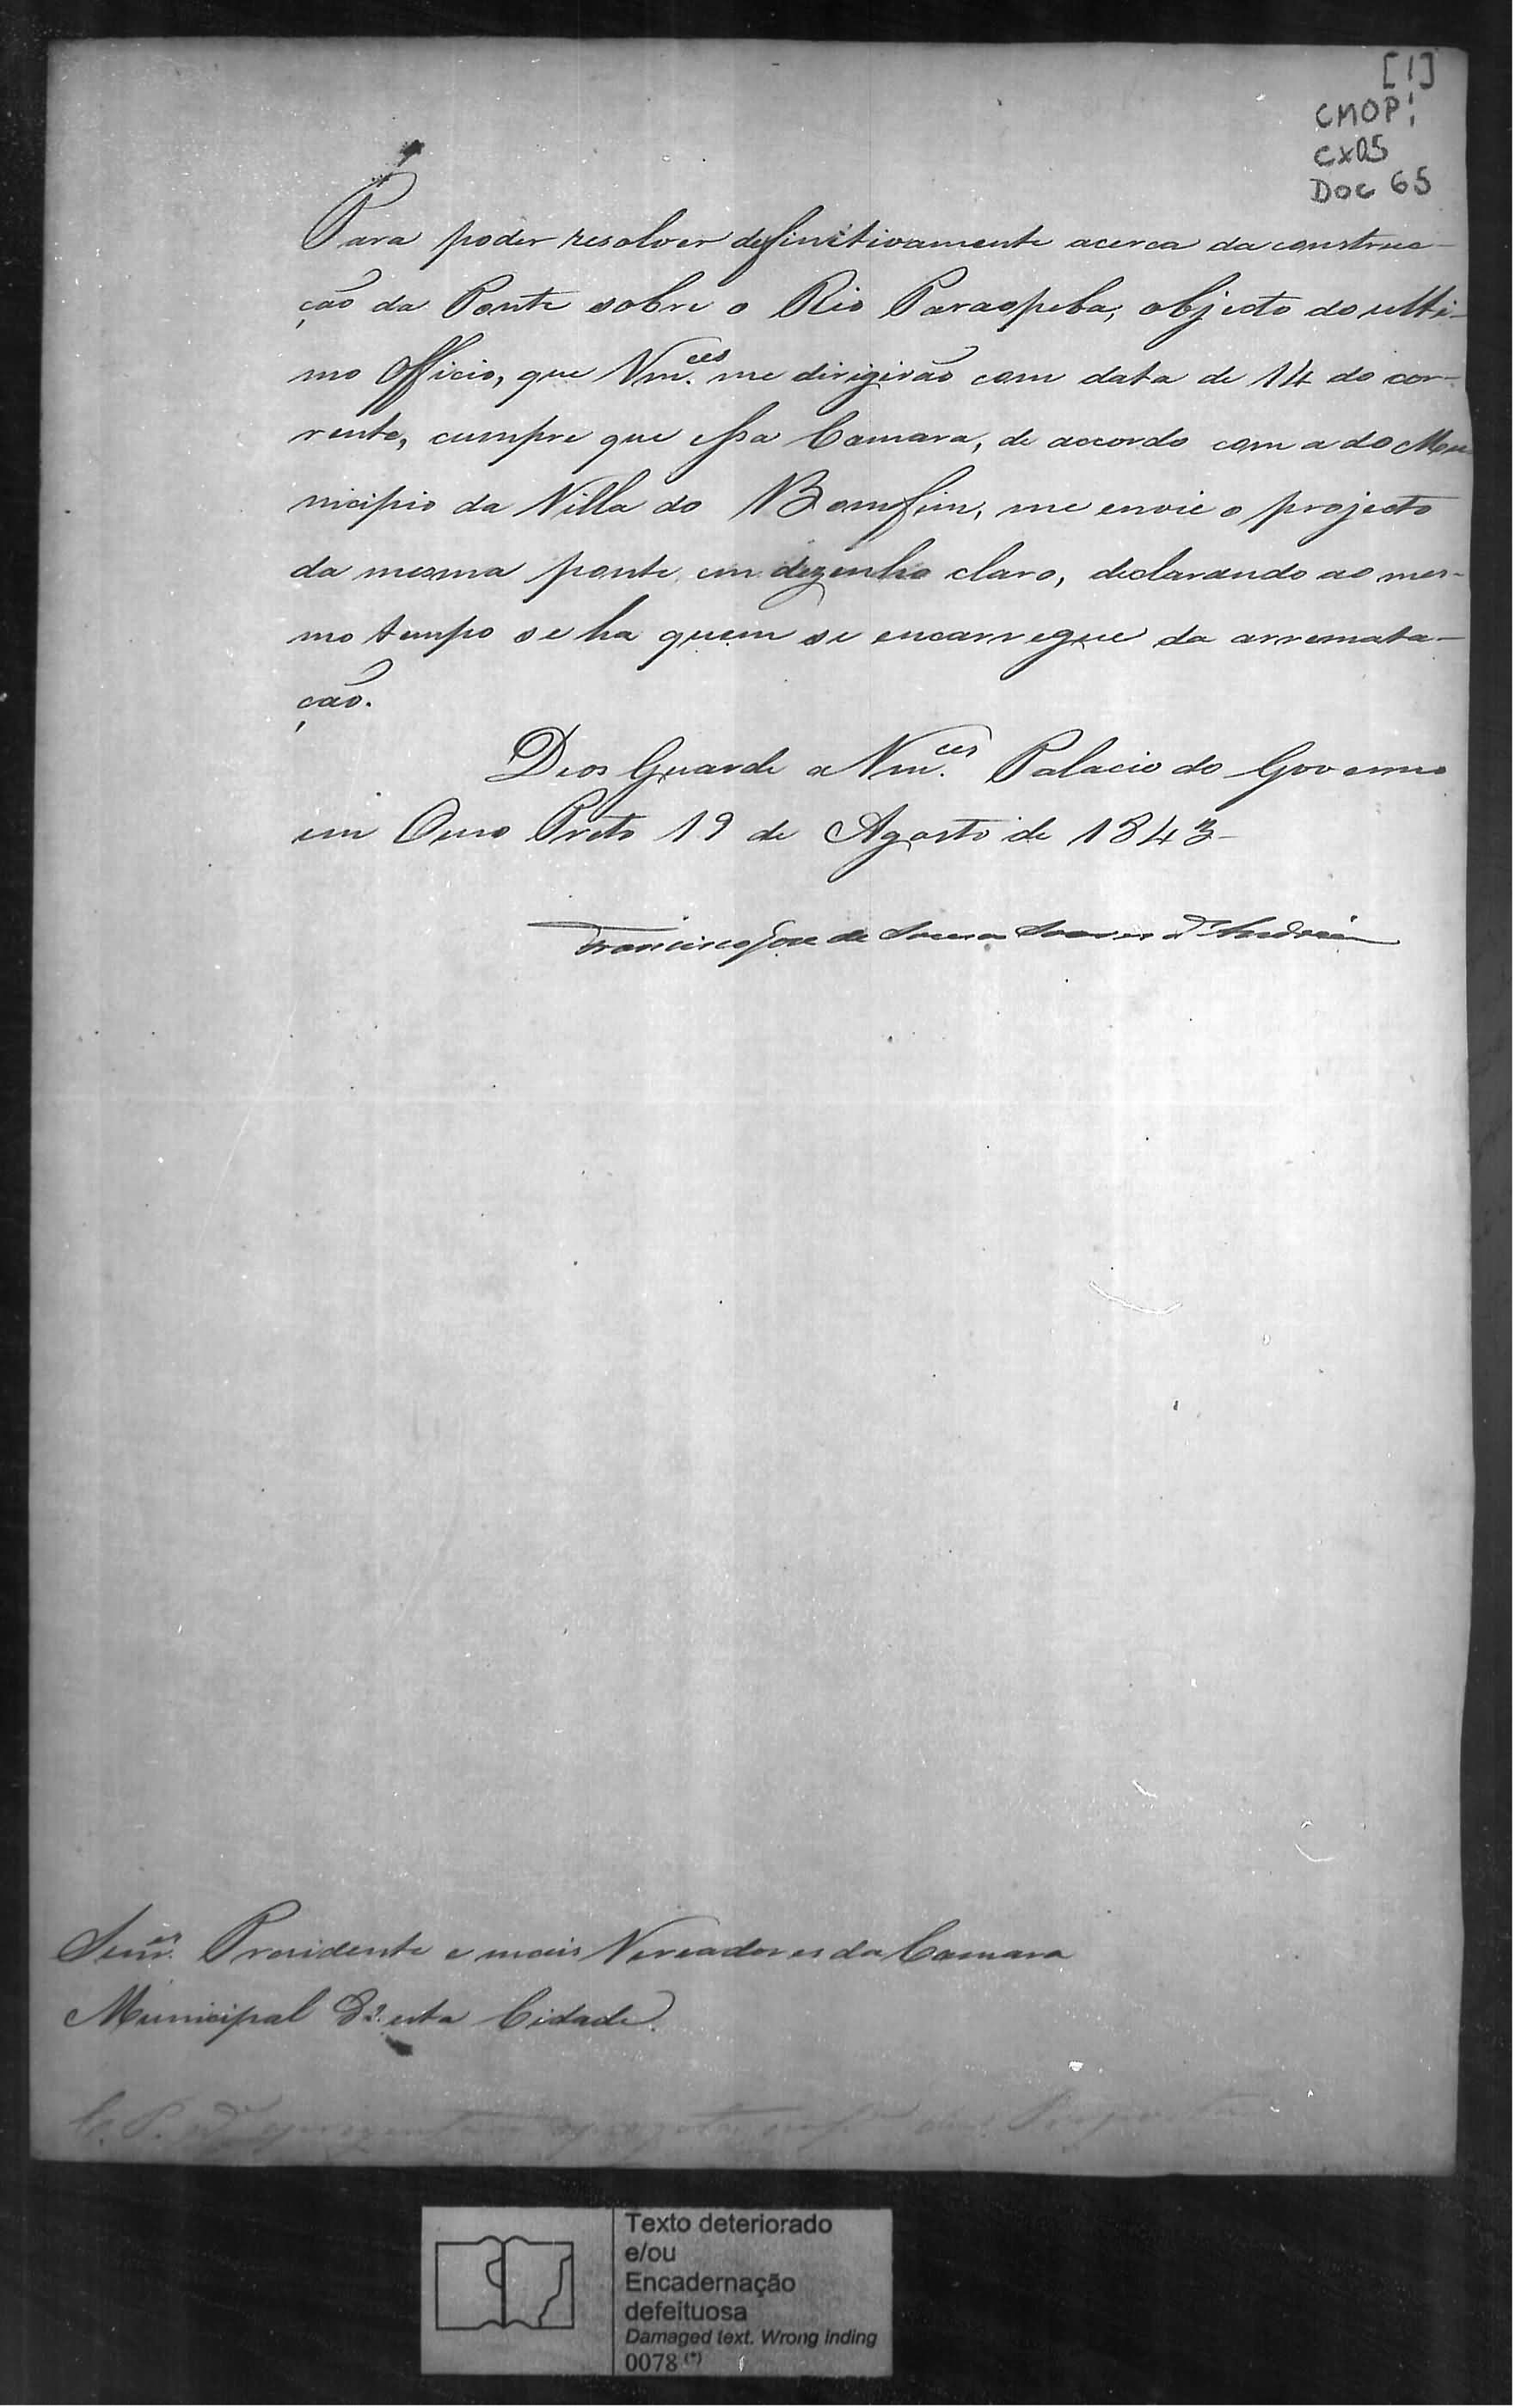 [1]
CMOP!
Cx05
Doc 65
Para poder resolver definitivamente acerca da construc-
ção da Ponte sobre o Rio Paraopeba, objecto do ulti-
mo Officio, que Vm.ces me dirigirão com data de 14 do cor-
rente, cumpre que essa Camara, de accordo com a do Mu
nicipio da Villa do Bomfim, me envie o projecto
da mesma ponte em dezenho claro, declarando ao mes-
mo tempo se ha quem se encarregue da arremata-
ção.
Deos Guarde a Vm.ces Palacio do Governo
em Ouro Preto 19 de Agosto de 1843
Francisco José de Souza Soares d'Andréa
Senr.es Presidente e mais Vereadores da Camara
Municipal d'esta Cidade.
Texto deteriorado
e/ou
Encadernação
defeituosa
Damaged text. Wrong inding
0078 (*)